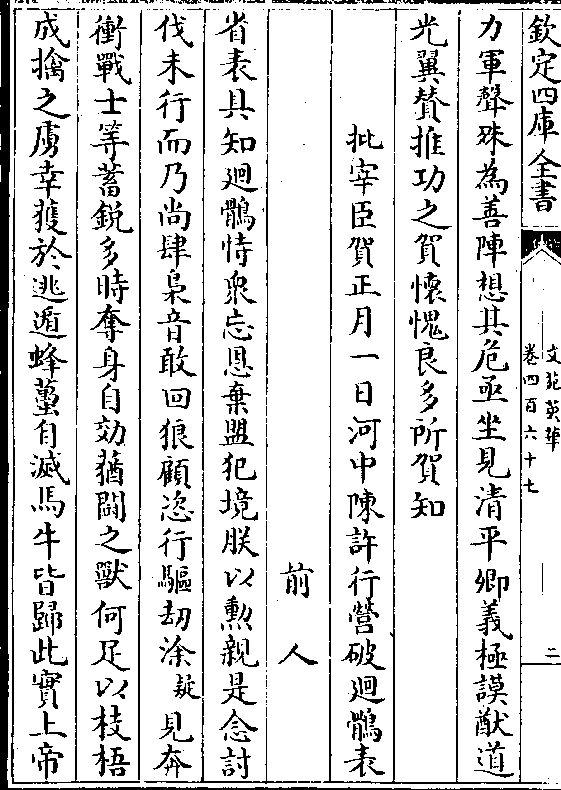 欽定四庫全書
文苑英華
卷四百六十七
二
力軍聲殊為善陣想其危亟坐見清平卿義極謨猷道
光翼贊推功之賀懷愧良多所賀知
批宰臣賀正月一日河中陳許行營破迴鶻表
前人
省表具知迴鶻恃衆忘恩棄盟犯境朕以勲親是念討
伐未行而乃尚肆梟音敢回狼顧恣行驅刼涂疑見奔
衝戰士等蓄鋭多時奪身自効猶鬬之獸何足以枝梧
成擒之虜幸獲於逃遁蜂蠆自滅馬牛皆歸此實上帝